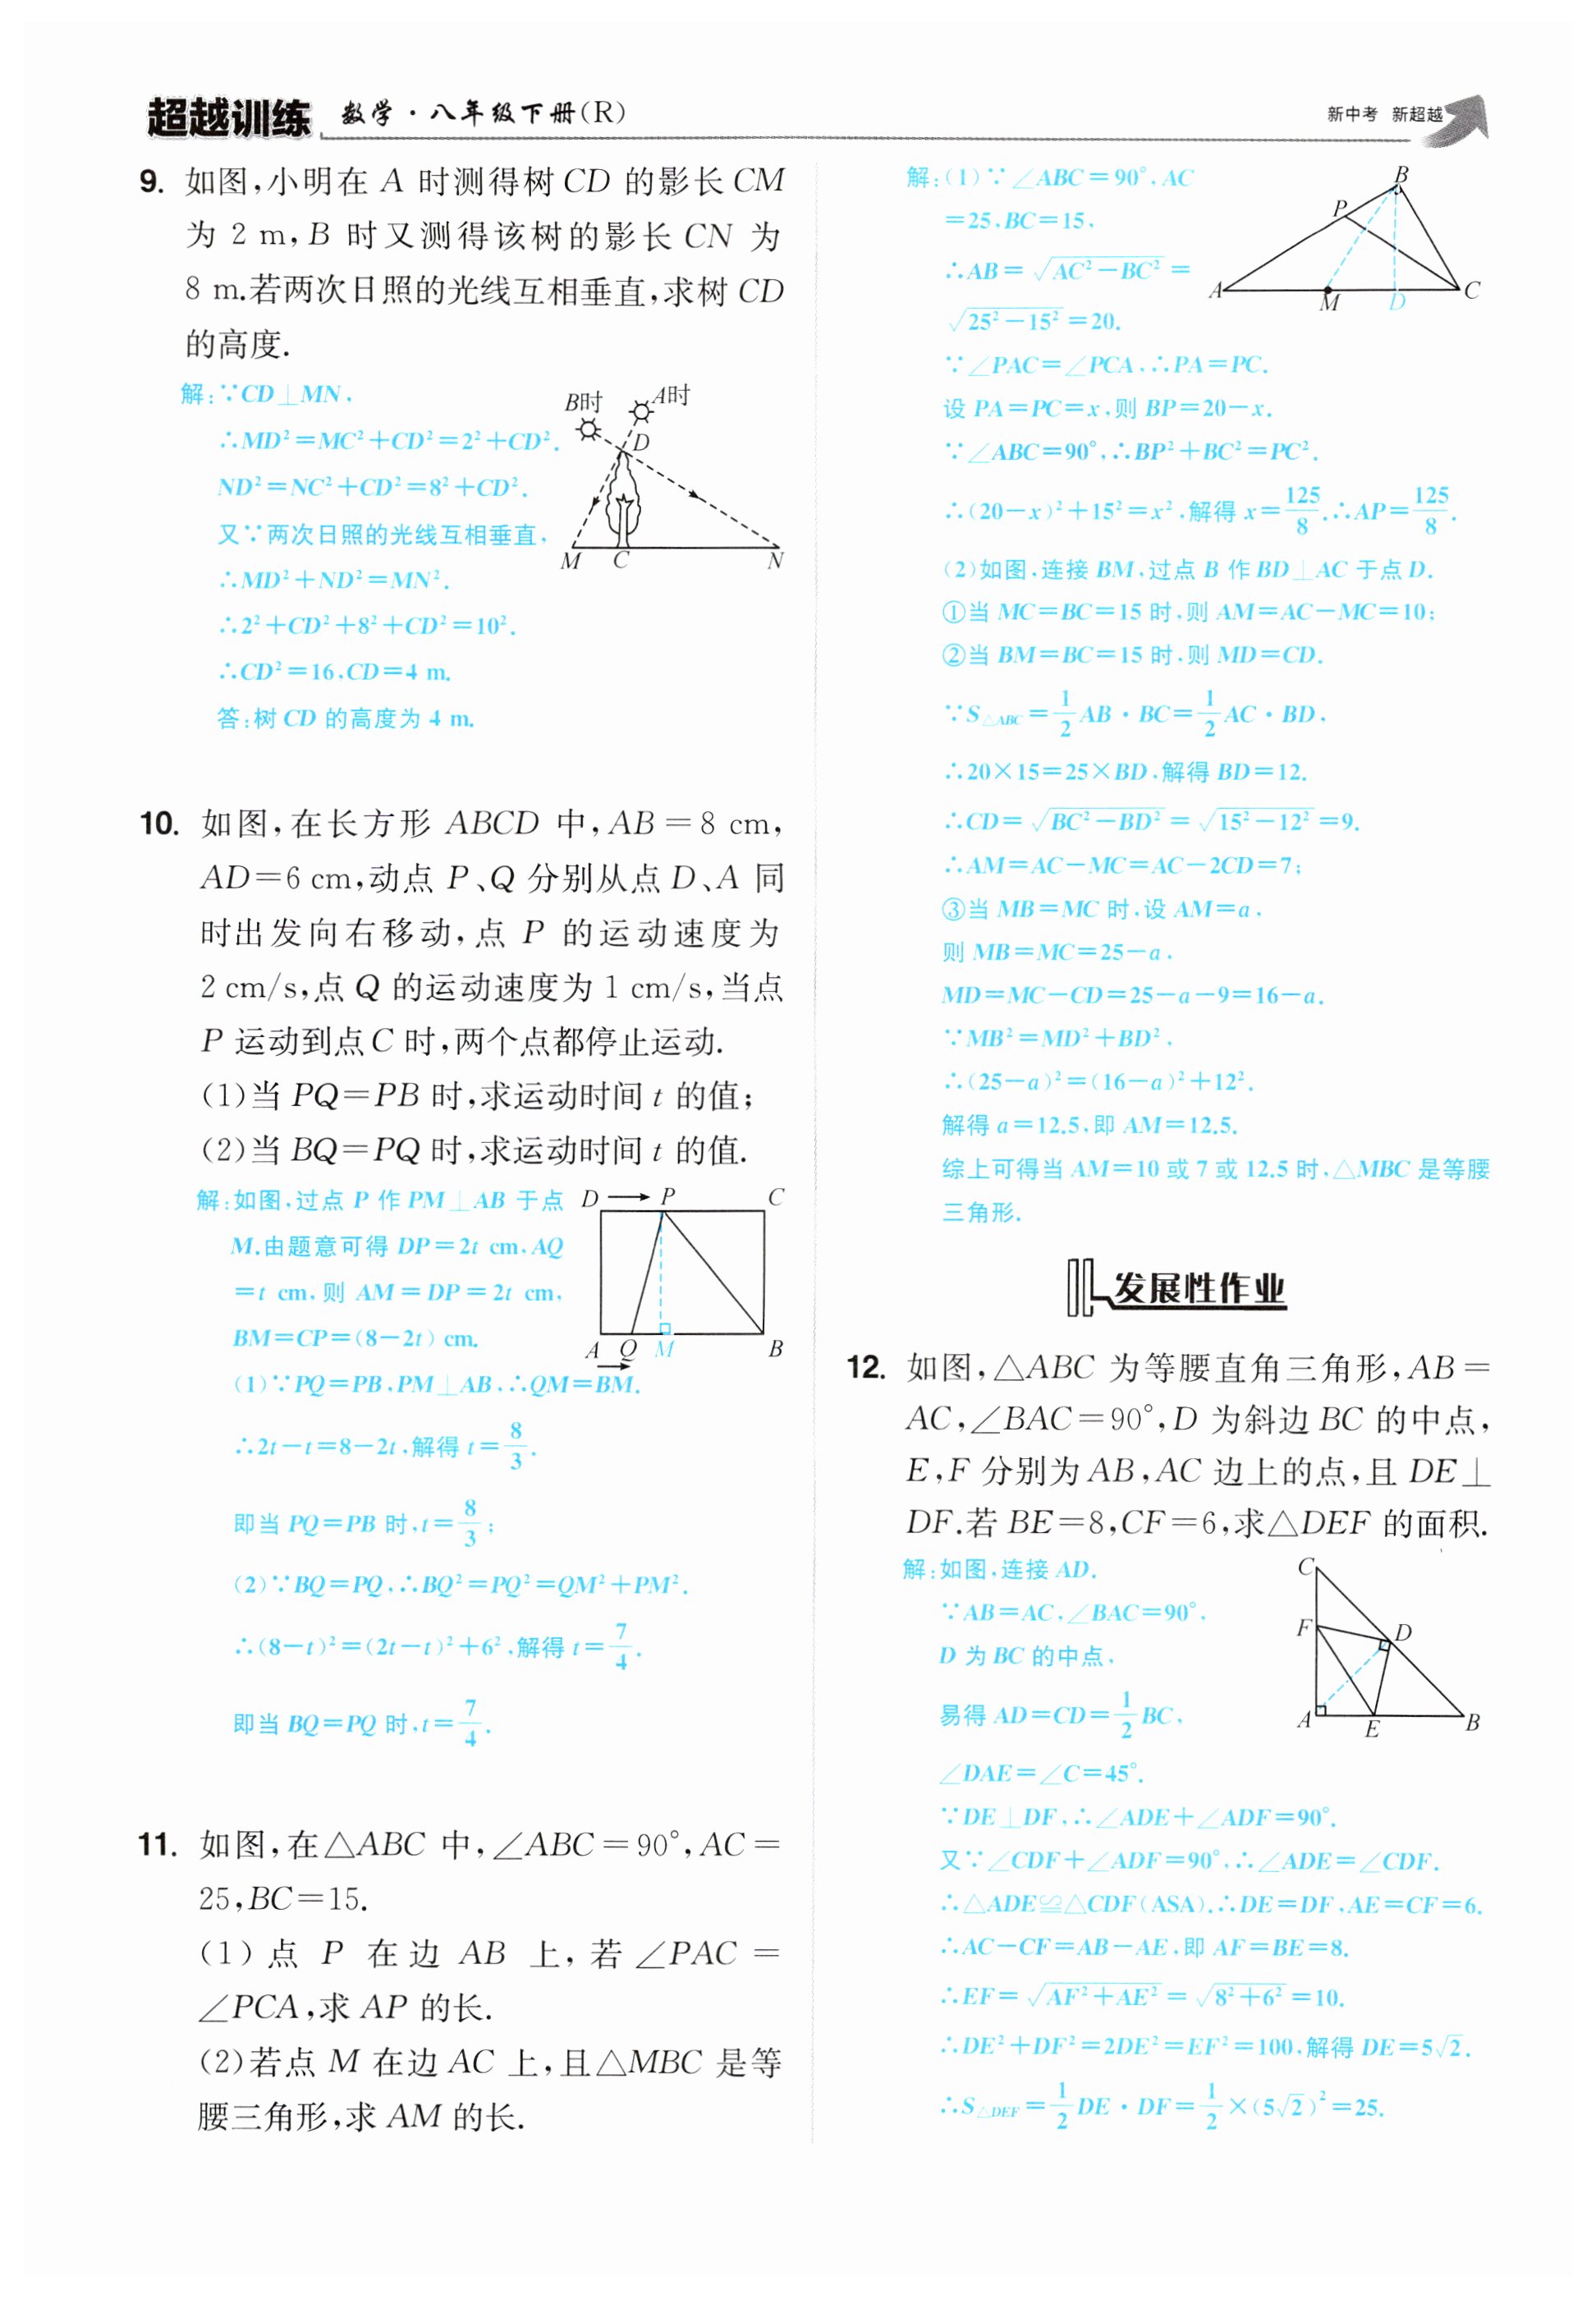 超越训练 数学·八年级下册(R)
新中考 新超越
9. 如图,小明在 A 时测得树 CD 的影长 CM
为 2 m,B 时又测得该树的影长 CN 为
8 m.若两次日照的光线互相垂直,求树 CD
的高度.
解:∵CD⊥MN,
∴MD²=MC²+CD²=2²+CD²,
ND²=NC²+CD²=8²+CD².
又∵两次日照的光线互相垂直,
∴MD²+ND²=MN².
∴2²+CD²+8²+CD²=10².
∴CD²=16,CD=4 m.
答:树 CD 的高度为 4 m.
B时 A时
D
M C N
10. 如图,在长方形 ABCD 中,AB=8 cm,
AD=6 cm,动点 P、Q 分别从点 D、A 同
时出发向右移动,点 P 的运动速度为
2 cm/s,点 Q 的运动速度为 1 cm/s,当点
P 运动到点 C 时,两个点都停止运动.
(1)当 PQ=PB 时,求运动时间 t 的值;
(2)当 BQ=PQ 时,求运动时间 t 的值.
解:如图,过点 P 作 PM⊥AB 于点
M.由题意可得 DP=2t cm,AQ
=t cm,则 AM=DP=2t cm,
BM=CP=(8-2t) cm.
(1)∵PQ=PB,PM⊥AB,∴QM=BM.
∴2t-t=8-2t,解得 t=8/3.
即当 PQ=PB 时,t=8/3;
(2)∵BQ=PQ,∴BQ²=PQ²=QM²+PM².
∴(8-t)²=(2t-t)²+6²,解得 t=7/4.
即当 BQ=PQ 时,t=7/4.
D P C
A Q M B
11. 如图,在△ABC 中,∠ABC=90°,AC=
25,BC=15.
(1)点 P 在边 AB 上,若∠PAC=
∠PCA,求 AP 的长.
(2)若点 M 在边 AC 上,且△MBC 是等
腰三角形,求 AM 的长.
解:(1)∵∠ABC=90°,AC
=25,BC=15,
∴AB=√(AC²-BC²)=
√(25²-15²)=20.
∵∠PAC=∠PCA,∴PA=PC.
设 PA=PC=x,则 BP=20-x.
∵∠ABC=90°,∴BP²+BC²=PC².
∴(20-x)²+15²=x²,解得 x=125/8,∴AP=125/8.
(2)如图,连接 BM,过点 B 作 BD⊥AC 于点 D.
①当 MC=BC=15 时,则 AM=AC-MC=10;
②当 BM=BC=15 时,则 MD=CD.
∵S△ABC=1/2AB·BC=1/2AC·BD,
∴20×15=25×BD,解得 BD=12.
∴CD=√(BC²-BD²)=√(15²-12²)=9.
∴AM=AC-MC=AC-2CD=7;
③当 MB=MC 时,设 AM=a,
则 MB=MC=25-a,
MD=MC-CD=25-a-9=16-a.
∵MB²=MD²+BD²,
∴(25-a)²=(16-a)²+12².
解得 a=12.5,即 AM=12.5.
综上可得当 AM=10 或 7 或 12.5 时,△MBC 是等腰
三角形.
B
P
A M D C
发展性作业
12. 如图,△ABC 为等腰直角三角形,AB=
AC,∠BAC=90°,D 为斜边 BC 的中点,
E,F 分别为 AB,AC 边上的点,且 DE⊥
DF.若 BE=8,CF=6,求△DEF 的面积.
解:如图,连接 AD.
∵AB=AC,∠BAC=90°,
D 为 BC 的中点,
易得 AD=CD=1/2BC,
∠DAE=∠C=45°.
∵DE⊥DF,∴∠ADE+∠ADF=90°.
又∵∠CDF+∠ADF=90°,∴∠ADE=∠CDF.
∴△ADE≌△CDF(ASA).∴DE=DF,AE=CF=6.
∴AC-CF=AB-AE,即 AF=BE=8.
∴EF=√(AF²+AE²)=√(8²+6²)=10.
∴DE²+DF²=2DE²=EF²=100,解得 DE=5√2.
∴S△DEF=1/2DE·DF=1/2×(5√2)²=25.
C
F D
A E B